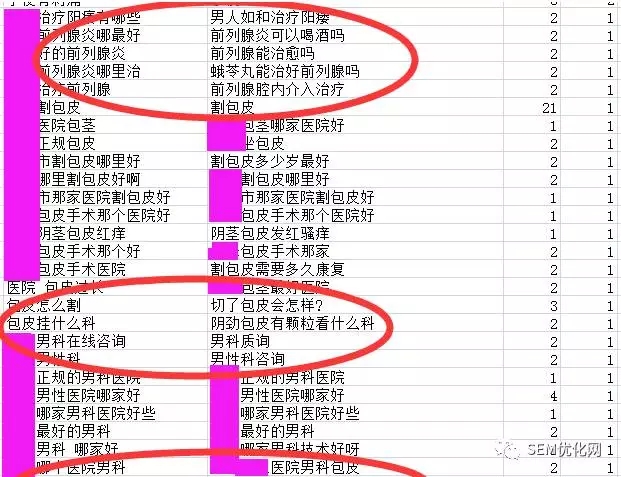 治疗阳痿有哪些 男人如和治疗阳痿 2 1
前列腺炎哪最好 前列腺炎可以喝酒吗 2 1
好的前列腺炎 前列腺能治愈吗 2 1
前列腺炎哪里治 蛾苓丸能治好前列腺吗 2 1
治疗前列腺 前列腺腔内介入治疗 2 1
割包皮 割包皮 21 1
医院包茎 包茎哪家医院好 1 1
正规包皮 包皮 2 1
市割包皮哪里好 割包皮多少岁最好 2 1
哪里割包皮好啊 割包皮哪里好 2 1
市那家医院割包皮好 市那家医院割包皮好 1 1
包皮手术那个医院好 包皮手术那个医院好 1 1
阴茎包皮红痒 阴茎包皮发红骚痒 1 1
包皮手术那个好 包皮手术那家 2 1
包皮手术医院 割包皮需要多久康复 2 1
医院 包皮过长 包茎最好医院 2 1
包皮怎么割 切了包皮会怎样? 3 1
包皮挂什么科 阴劲包皮有颗粒看什么科 2 1
男科在线咨询 男科质询 2 1
男性科 男性科咨询 2 1
正规的男科医院 正规的男科医院 1 1
男性医院哪家好 男性医院哪家好 4 1
哪家男科医院好些 哪家男科医院好些 1 1
最好的男科 最好的男科 2 1
男科 哪家好 哪家男科技术好呀 2 1
哪个医院男科 医院男科包皮 2 1
SEM优化网